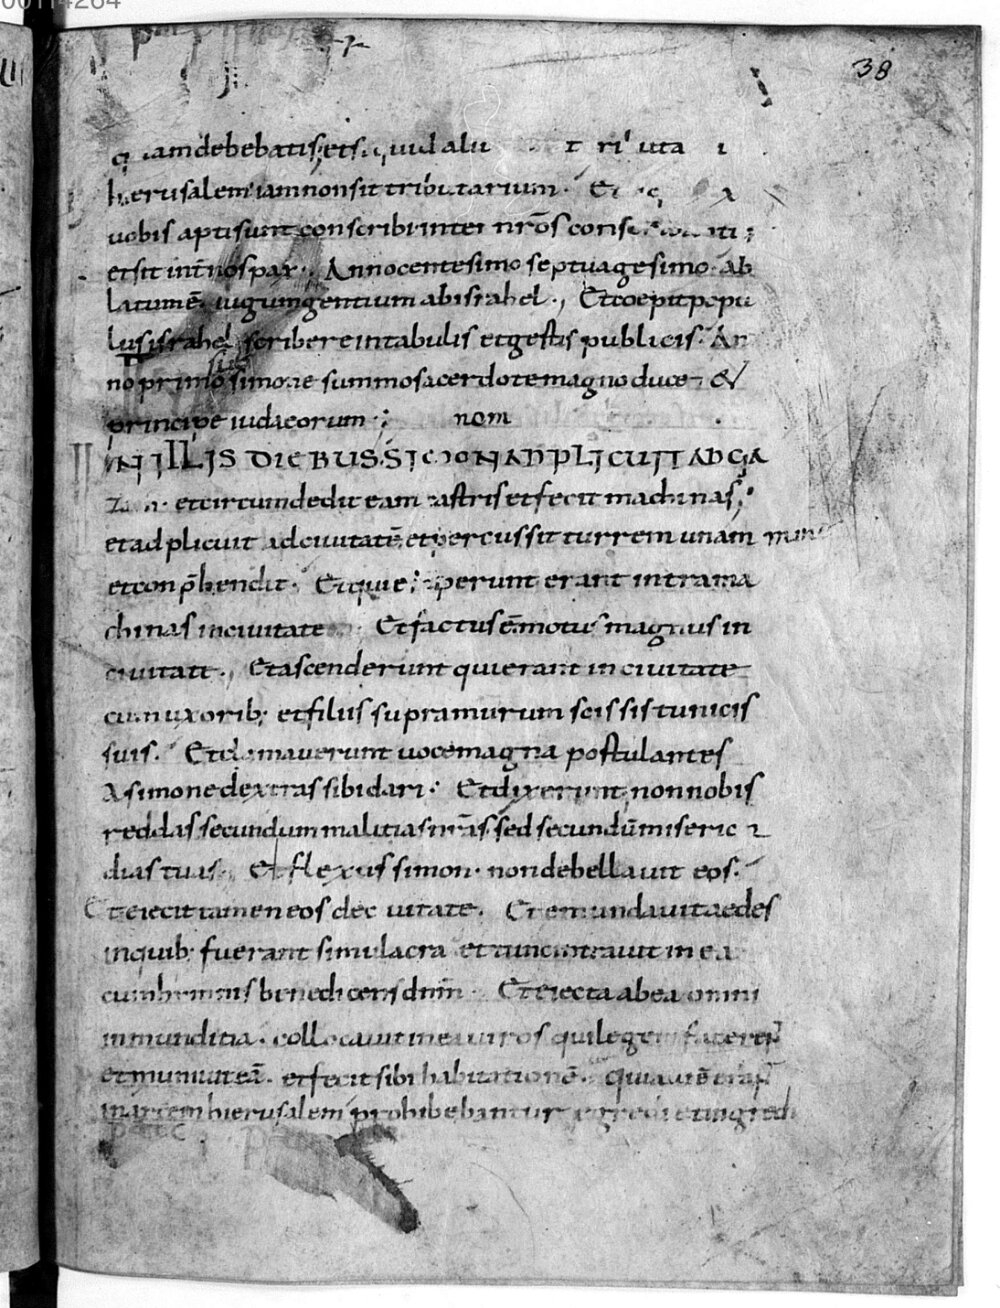 00114264
38
quam debebatis; et si quid aliu t ri uta i
hierusalem iam non sit tributarium. Et
uobis apti sunt conscribi inter nr̄os cons
et sit int̄ nos pax. Anno centesimo septuagesimo ab
latum ē iugum gentium ab israhel. Et coepit popu
lus israhel scribere in tabulis et gestis publicis. An
sub
no primo simone summo sacerdote magno duce &
principe iudaeorum; nom
IN ILLIS DIEBUS SIMON ADPLICUIT AD GA
za et circumdedit eam castris et fecit machinas;
et adplicuit ad ciuitatē et percussit turrem unam
et conp̄hendit. Et qui eruperant erant intra ma
chinas in ciuitate Et factus ē motus magnus in
ciuitate. Et ascenderunt qui erant in ciuitate
cum uxorib; et filiis supra murum scissis tunicis
suis. Et clamauerunt uoce magna postulantes
A simone dextras sibi dari. Et dixerunt non nobis
reddas secundum malitias nr̄as sed secundū misericor
dias tuas. Et flexus simon non debellauit eos.
Et eiecit tamen eos de ciuitate. Et emundauit aedes
in quib; fuerant simulacra et tunc intrauit in ea
cum hymnis benedicens dnm̄ Et eiecta ab ea omni
inmunditia. collocauit in ea uiros qui legem facerent
et muniuit eā. et fecit sibi habitationē. Qui autē erant
in arcem hierusalem prohibebantur egredi et ingredi